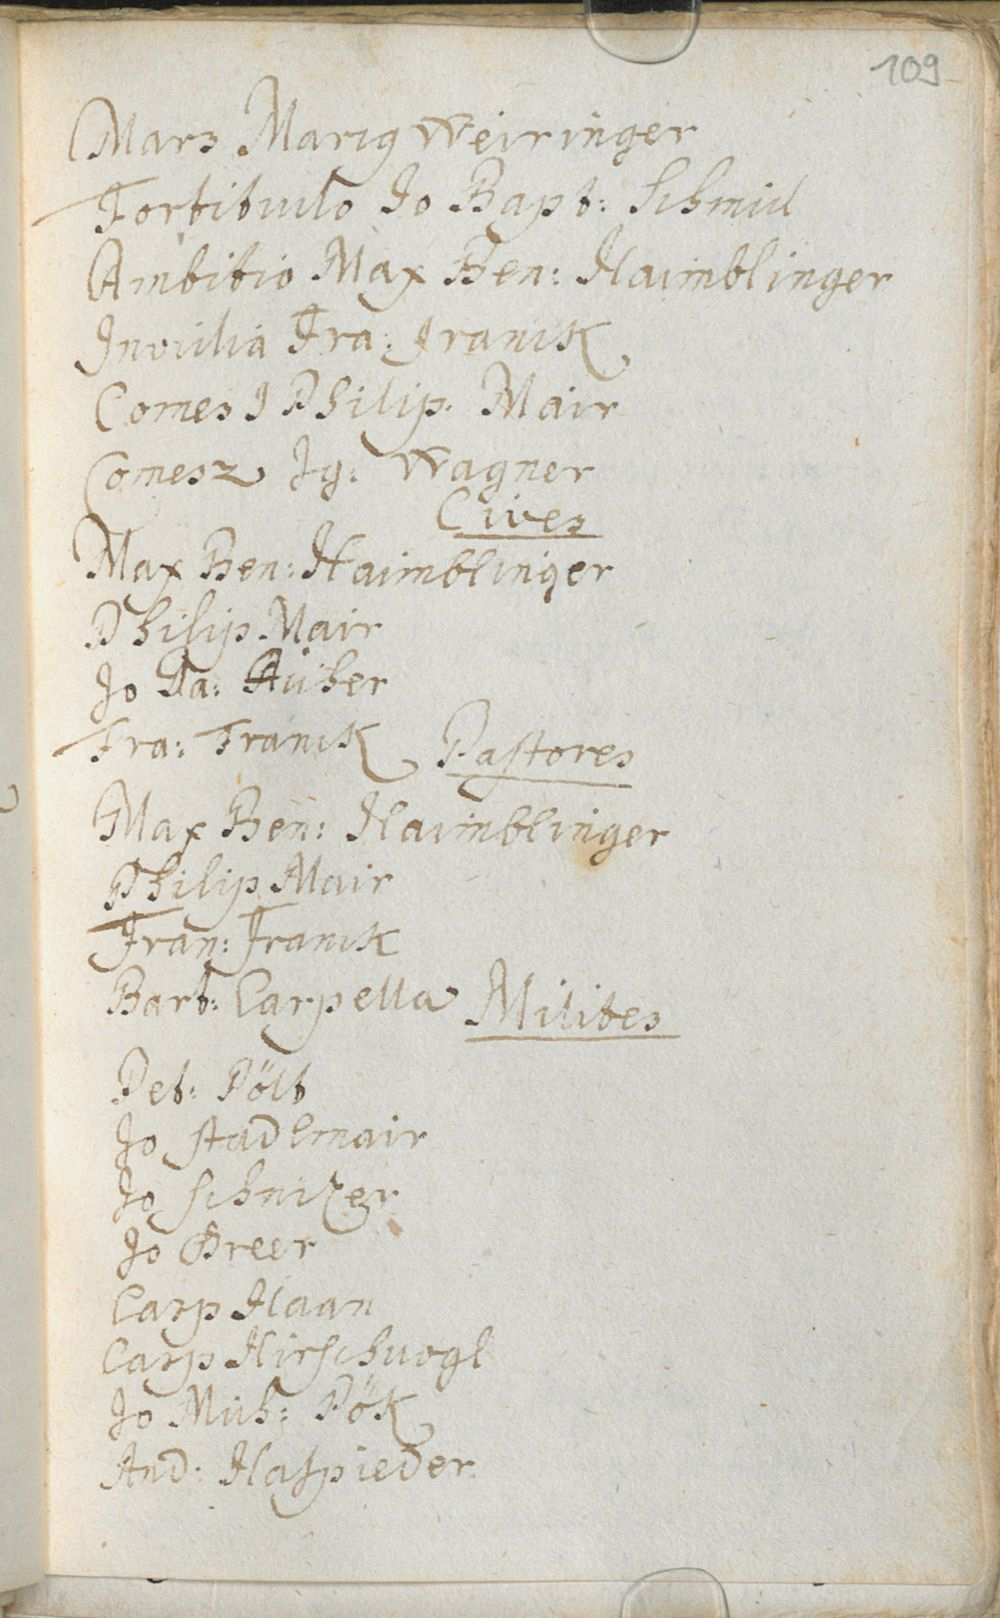 109
Mars Mariq Weiringer
Fortitudo Jo Bapt: Schmid
Ambitio Max Hen: Haimblinger
Invidia Fra: Franck
Comes I Philip. Mair
Comes 2 Ig: Wagner
Cives
Max Hen: Haimblinger
Philip Mair
Jo Huber
Fra: Franck
Pastores
Max Hen: Haimblinger
Philip Mair
Fran: Franck
Bart: Carpella
Milites
Pet: Pölt
Jo Stadlmair
Jo Schnizer
Jo Breer
Casp Haan
Casp Hirschvogl
Jo Mich: Pök
And: Haspieder